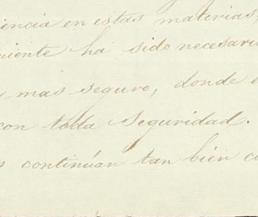 encia en estas materias,
niente ha sido necesari
mas seguro, donde
con toda seguridad.
continúan tan bien c